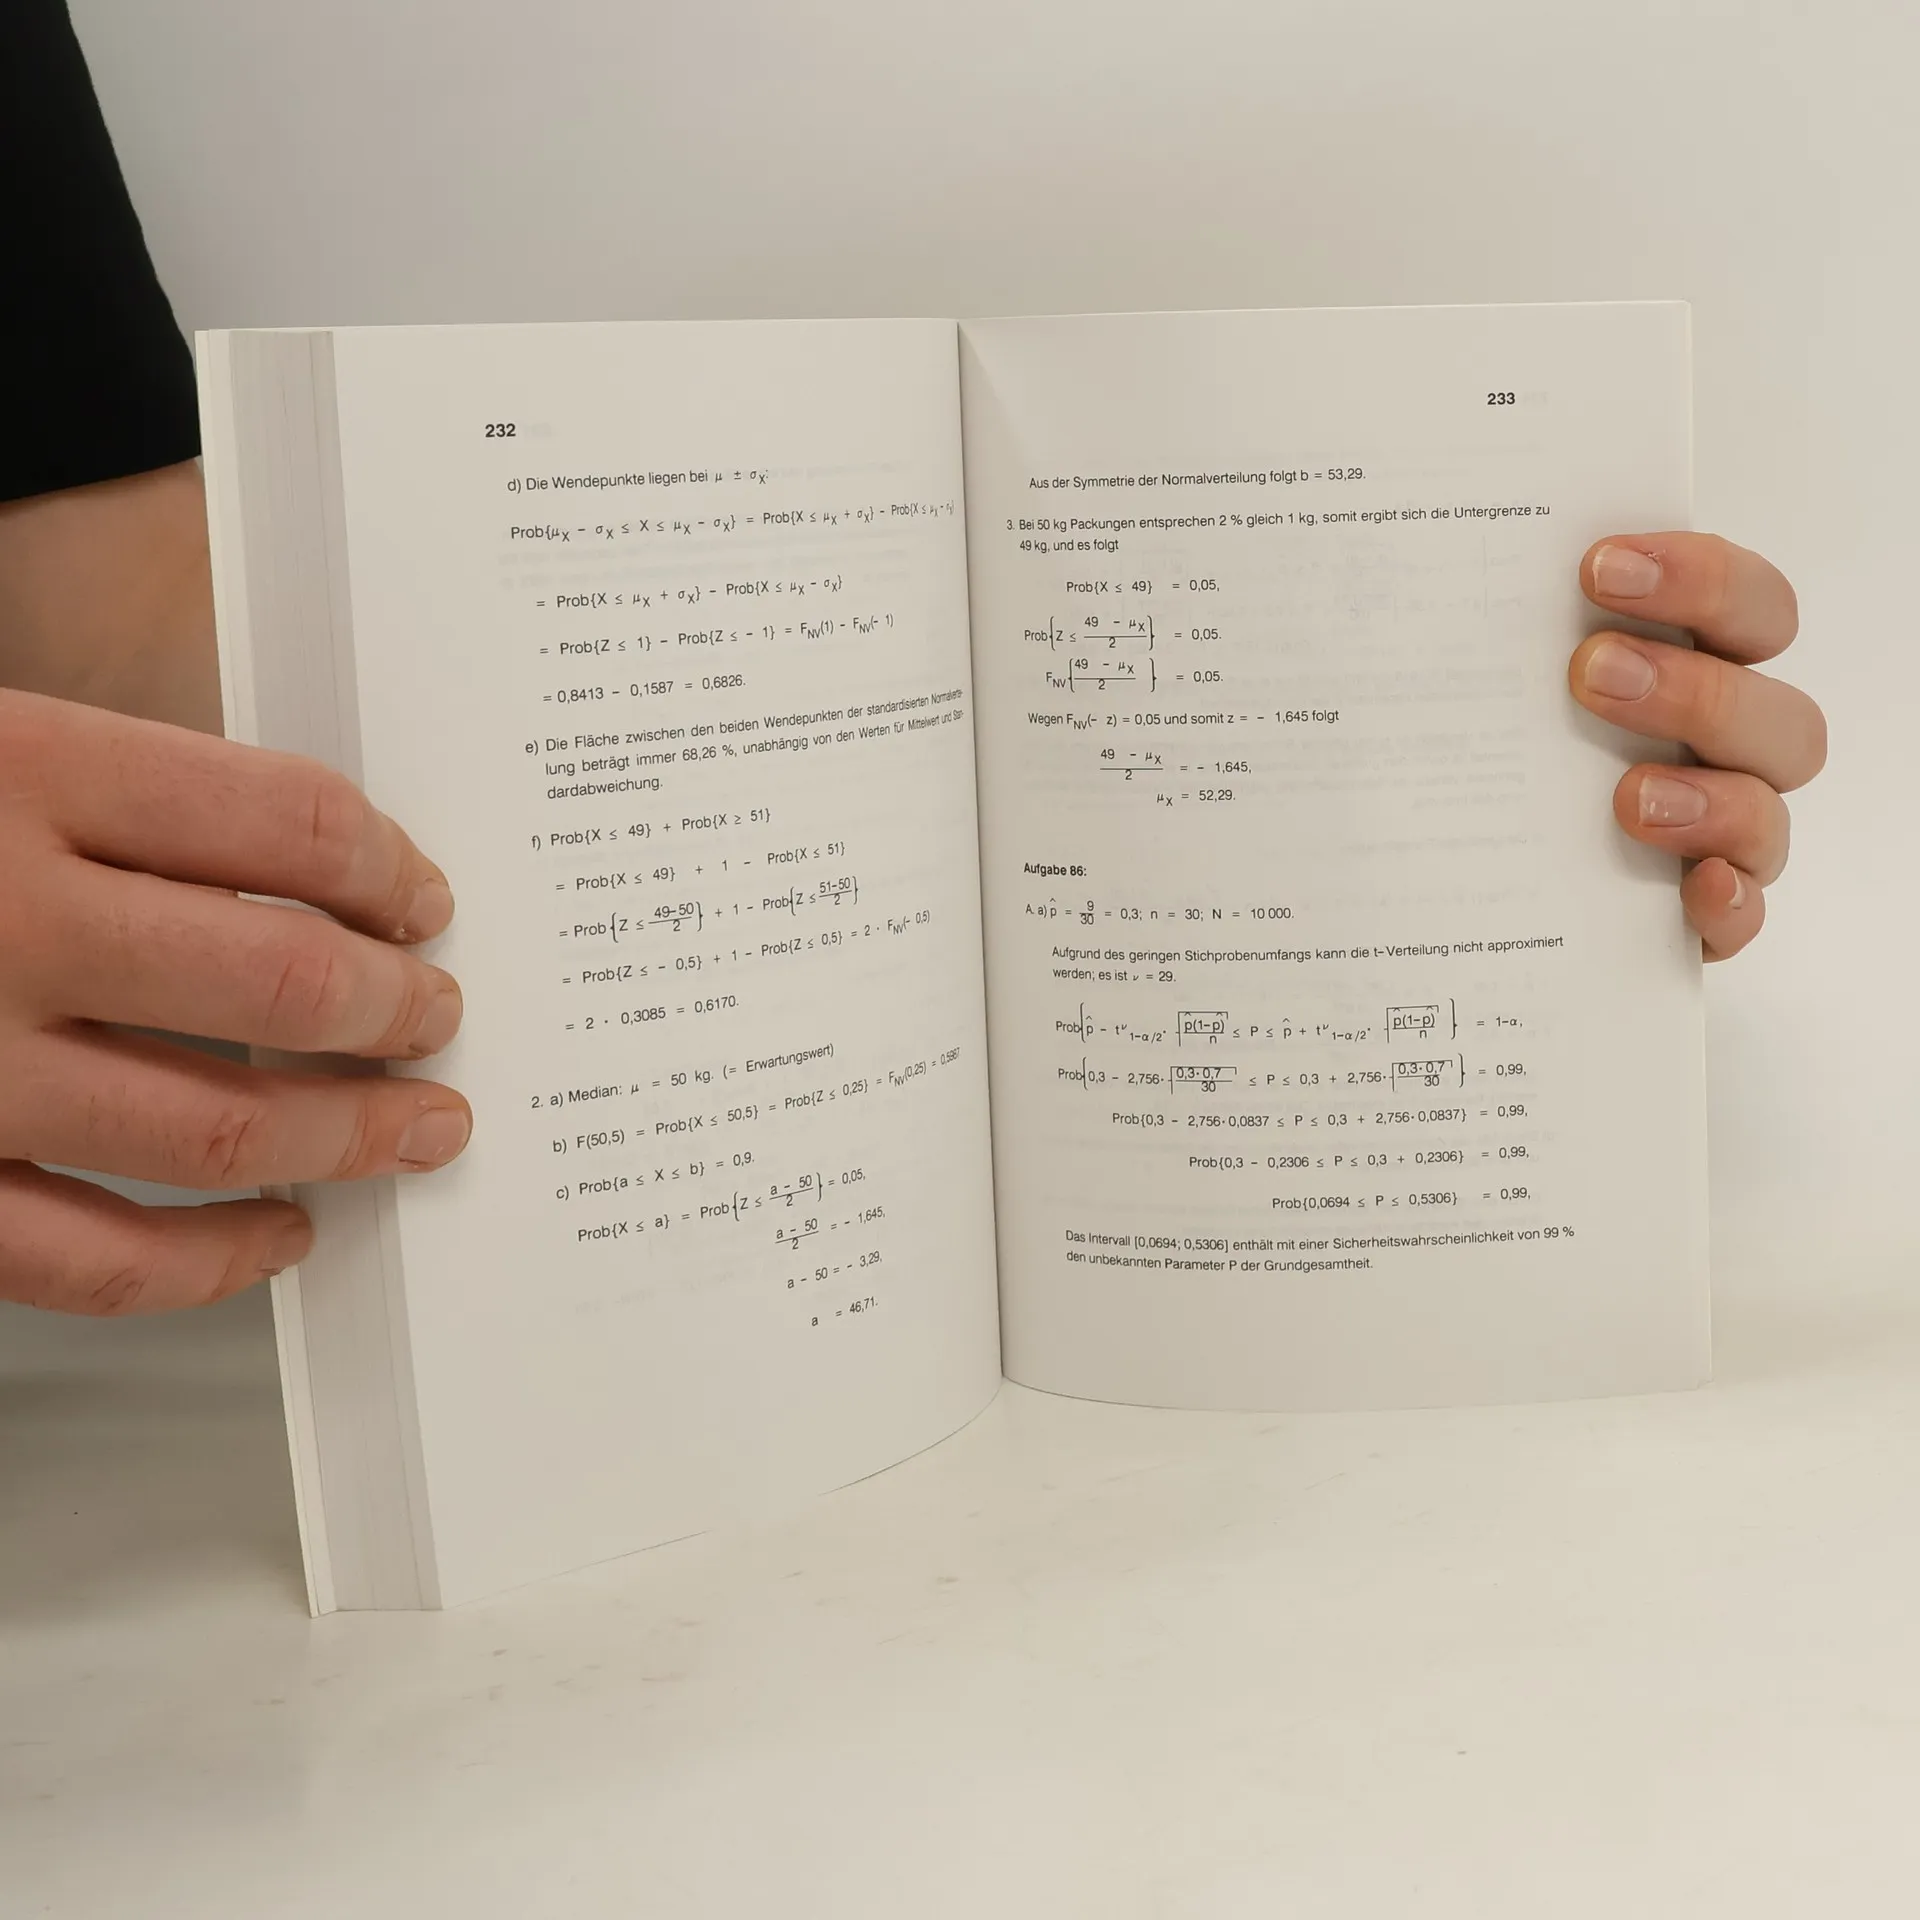 232
d) Die Wendepunkte liegen bei μ ± σX:
Prob{μX - σX ≤ X ≤ μX - σX} = Prob{X ≤ μX + σX} - Prob{X ≤ μX - σX}
= Prob{X ≤ μX + σX} - Prob{X ≤ μX - σX}
= Prob{Z ≤ 1} - Prob{Z ≤ - 1} = FNV(1) - FNV(- 1)
= 0,8413 - 0,1587 = 0,6826.
e) Die Fläche zwischen den beiden Wendepunkten der standardisierten Normalvertei-
lung beträgt immer 68,26 %, unabhängig von den Werten für Mittelwert und Stan-
dardabweichung.
f) Prob{X ≤ 49} + Prob{X ≥ 51}
= Prob{X ≤ 49} + 1 - Prob{X ≤ 51}
= Prob{Z ≤ (49-50)/2} + 1 - Prob{Z ≤ (51-50)/2}
= Prob{Z ≤ - 0,5} + 1 - Prob{Z ≤ 0,5} = 2 · FNV(- 0,5)
= 2 · 0,3085 = 0,6170.
2. a) Median: μ = 50 kg. (= Erwartungswert)
b) F(50,5) = Prob{X ≤ 50,5} = Prob{Z ≤ 0,25} = FNV(0,25) = 0,5987
c) Prob{a ≤ X ≤ b} = 0,9.
Prob{X ≤ a} = Prob{Z ≤ (a - 50)/2} = 0,05,
(a - 50)/2 = - 1,645,
a - 50 = - 3,29,
a = 46,71.
233
Aus der Symmetrie der Normalverteilung folgt b = 53,29.
3. Bei 50 kg Packungen entsprechen 2 % gleich 1 kg, somit ergibt sich die Untergrenze zu
49 kg, und es folgt
Prob{X ≤ 49} = 0,05,
Prob{Z ≤ (49 - μX)/2} = 0,05.
FNV{(49 - μX)/2} = 0,05.
Wegen FNV(- z) = 0,05 und somit z = - 1,645 folgt
(49 - μX)/2 = - 1,645,
μX = 52,29.
Aufgabe 86:
A. a) p̂ = 9/30 = 0,3; n = 30; N = 10 000.
Aufgrund des geringen Stichprobenumfangs kann die t-Verteilung nicht approximiert
werden; es ist ν = 29.
Prob{p̂ - tν1-α/2 · √(p̂(1-p̂)/n) ≤ P ≤ p̂ + tν1-α/2 · √(p̂(1-p̂)/n)} = 1-α,
Prob{0,3 - 2,756· √(0,3·0,7/30) ≤ P ≤ 0,3 + 2,756· √(0,3·0,7/30)} = 0,99,
Prob{0,3 - 2,756·0,0837 ≤ P ≤ 0,3 + 2,756·0,0837} = 0,99,
Prob{0,3 - 0,2306 ≤ P ≤ 0,3 + 0,2306} = 0,99,
Prob{0,0694 ≤ P ≤ 0,5306} = 0,99,
Das Intervall [0,0694; 0,5306] enthält mit einer Sicherheitswahrscheinlichkeit von 99 %
den unbekannten Parameter P der Grundgesamtheit.